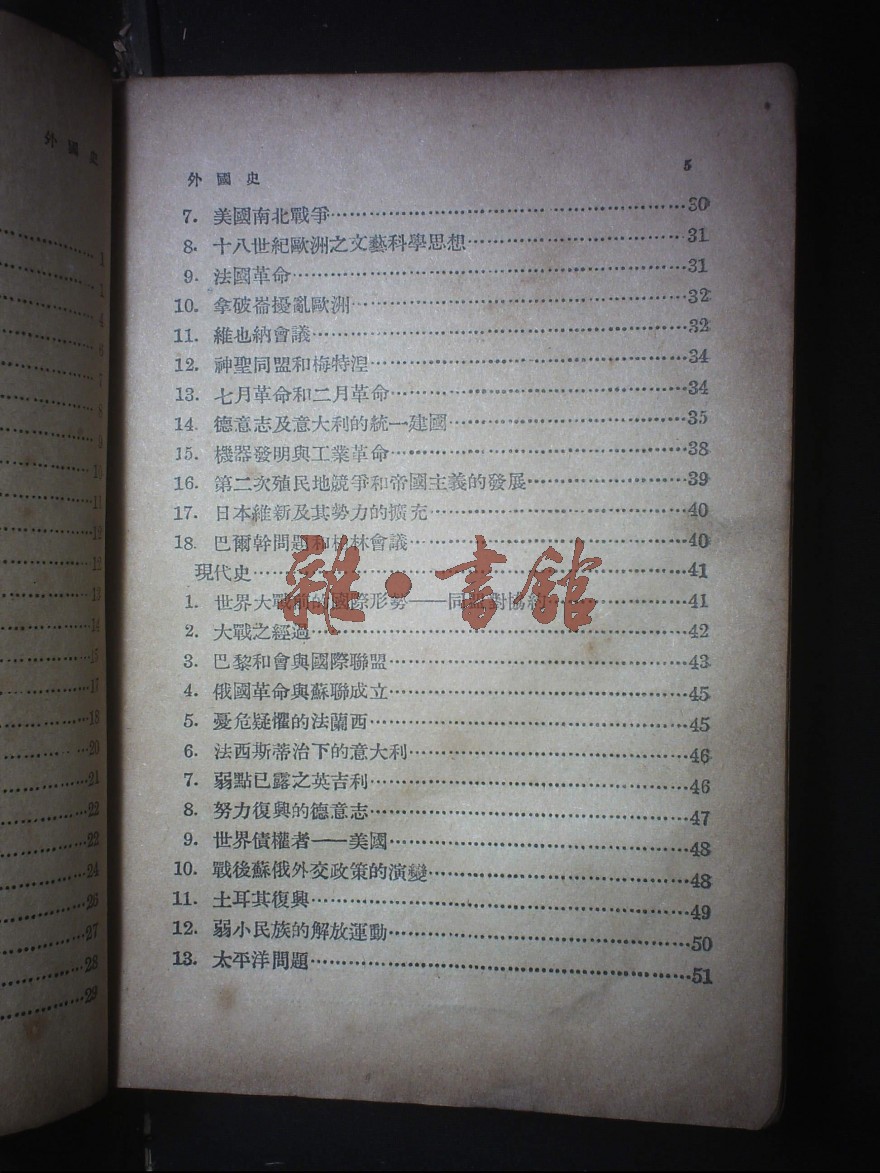 外國史
1
1
4
6
7
8
9
10
11
12
12
13
14
15
17
18
20
21
22
22
24
26
27
28
29
外國史 5
7. 美國南北戰爭……30
8. 十八世紀歐洲之文藝科學思想……31
9. 法國革命……31
10. 拿破崙擾亂歐洲……32
11. 維也納會議……32
12. 神聖同盟和梅特湼……34
13. 七月革命和二月革命……34
14. 德意志及意大利的統一建國……35
15. 機器發明與工業革命……38
16. 第二次殖民地競爭和帝國主義的發展……39
17. 日本維新及其勢力的擴充……40
18. 巴爾幹問題和柏林會議……40
現代史……41
1. 世界大戰前的國際形勢——同盟對協約……41
2. 大戰之經過……42
3. 巴黎和會與國際聯盟……43
4. 俄國革命與蘇聯成立……45
5. 憂危疑懼的法蘭西……45
6. 法西斯蒂治下的意大利……46
7. 弱點已露之英吉利……46
8. 努力復興的德意志……47
9. 世界債權者——美國……48
10. 戰後蘇俄外交政策的演變……48
11. 土耳其復興……49
12. 弱小民族的解放運動……50
13. 太平洋問題……51
雜·書館